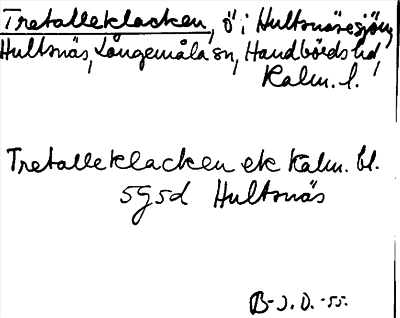 Tretalleklacken, ö i Hultsnäsesjön,
Hultsnäs, Långemåla sn, Handbörds hd,
Kalm. l.
Tretalleklacken ek Kalm. bl.
5g5d Hultsnäs
B-J.D.-55.